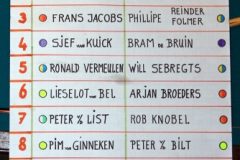 3 FRANS JACOBS PHILLIPE REINDER FOLMER
4 SJEF van KUICK BRAM DE BRUIN
5 RONALD VERMEULEN WILL SEBREGTS
6 LIESELOT van BEL ARJAN BROEDERS
7 PETER % LIST ROB KNOBEL
8 PIM van GINNEKEN PETER % BILT